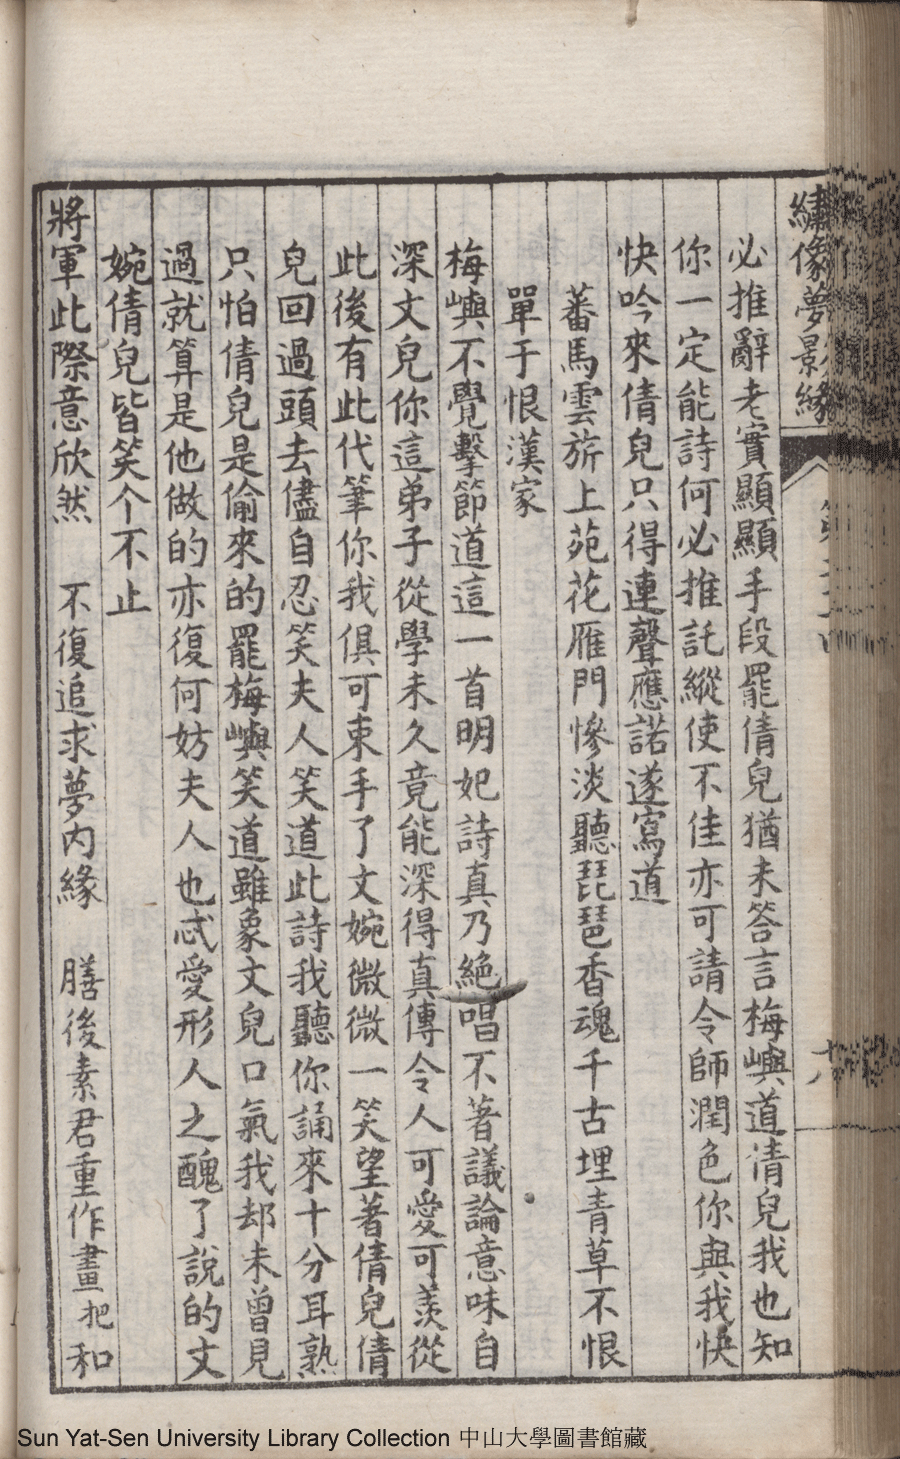 繡像夢景緣
必推辭老實顯顯手段罷倩兒猶未答言梅嶼道清兒我也知
你一定能詩何必推託縱使不佳亦可請令師潤色你與我快
快吟來倩兒只得連聲應諾遂寫道
蕃馬雲旂上苑花雁門慘淡聽琵琶香魂千古埋青草不恨
單于恨漢家
梅嶼不覺擊節道這一首明妃詩真乃絕唱不著議論意味自
深文兒你這弟子從學未久竟能深得真傳令人可愛可羨從
此後有此代筆你我俱可束手了文婉微微一笑望著倩兒倩
兒回過頭去儘自忍笑夫人笑道此詩我聽你誦來十分耳熟
只怕倩兒是偷來的罷梅嶼笑道雖象文兒口氣我却未曾見
過就算是他做的亦復何妨夫人也忒愛形人之醜了說的文
婉倩兒皆笑个不止
將軍此際意欣然 不復追求夢內緣 膳後素君重作畫把和
Sun Yat-Sen University Library Collection 中山大學圖書館藏